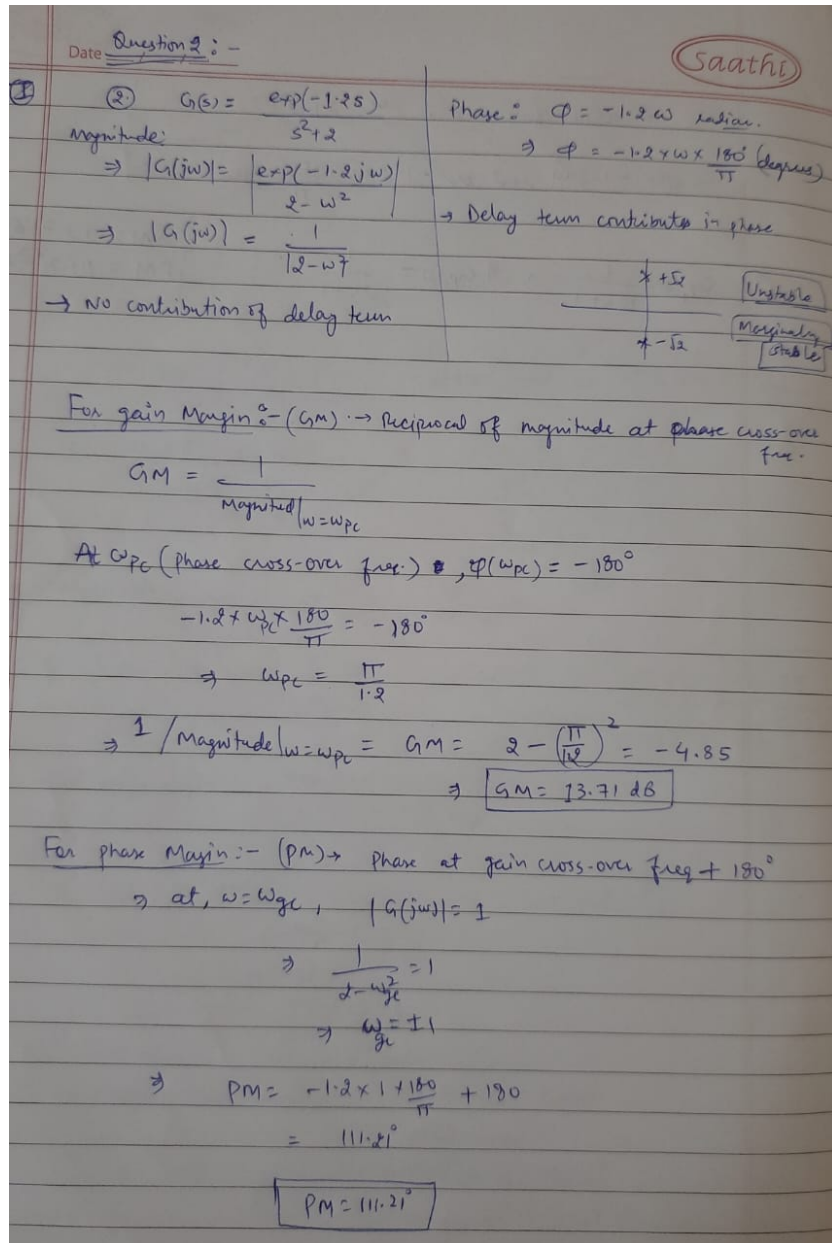 Date Question 2 : -
Saathi
① ② G(s) = exp(-1.2s) / s²+2
Magnitude:
⇒ |G(jω)| = |exp(-1.2jω) / 2-ω²|
⇒ |G(jω)| = 1 / |2-ω²|
→ No contribution of delay term
Phase : φ = -1.2 ω radian.
⇒ φ = -1.2 × ω × 180° / π (degrees)
→ Delay term contributes in phase
× +√2
× -√2
Unstable
Marginally
Stable
For gain Margin :- (GM) → Reciprocal of magnitude at phase cross-over
freq.
GM = 1 / Magnitud|ω=ωpc
At ωpc (phase cross-over freq.) , φ(ωpc) = -180°
-1.2 × ωpc × 180 / π = -180°
⇒ ωpc = π / 1.2
⇒ 1 / Magnitude|ω=ωpc = GM = 2 - (π / 1.2)² = -4.85
⇒ GM = 13.71 dB
For phase Magin :- (PM) → Phase at gain cross-over freq + 180°
⇒ at, ω = ωgc , |G(jω)| = 1
⇒ 1 / 2-ω²gc = 1
⇒ ωgc = ±1
⇒ PM = -1.2 × 1 × 180 / π + 180
= 111.21°
PM = 111.21°